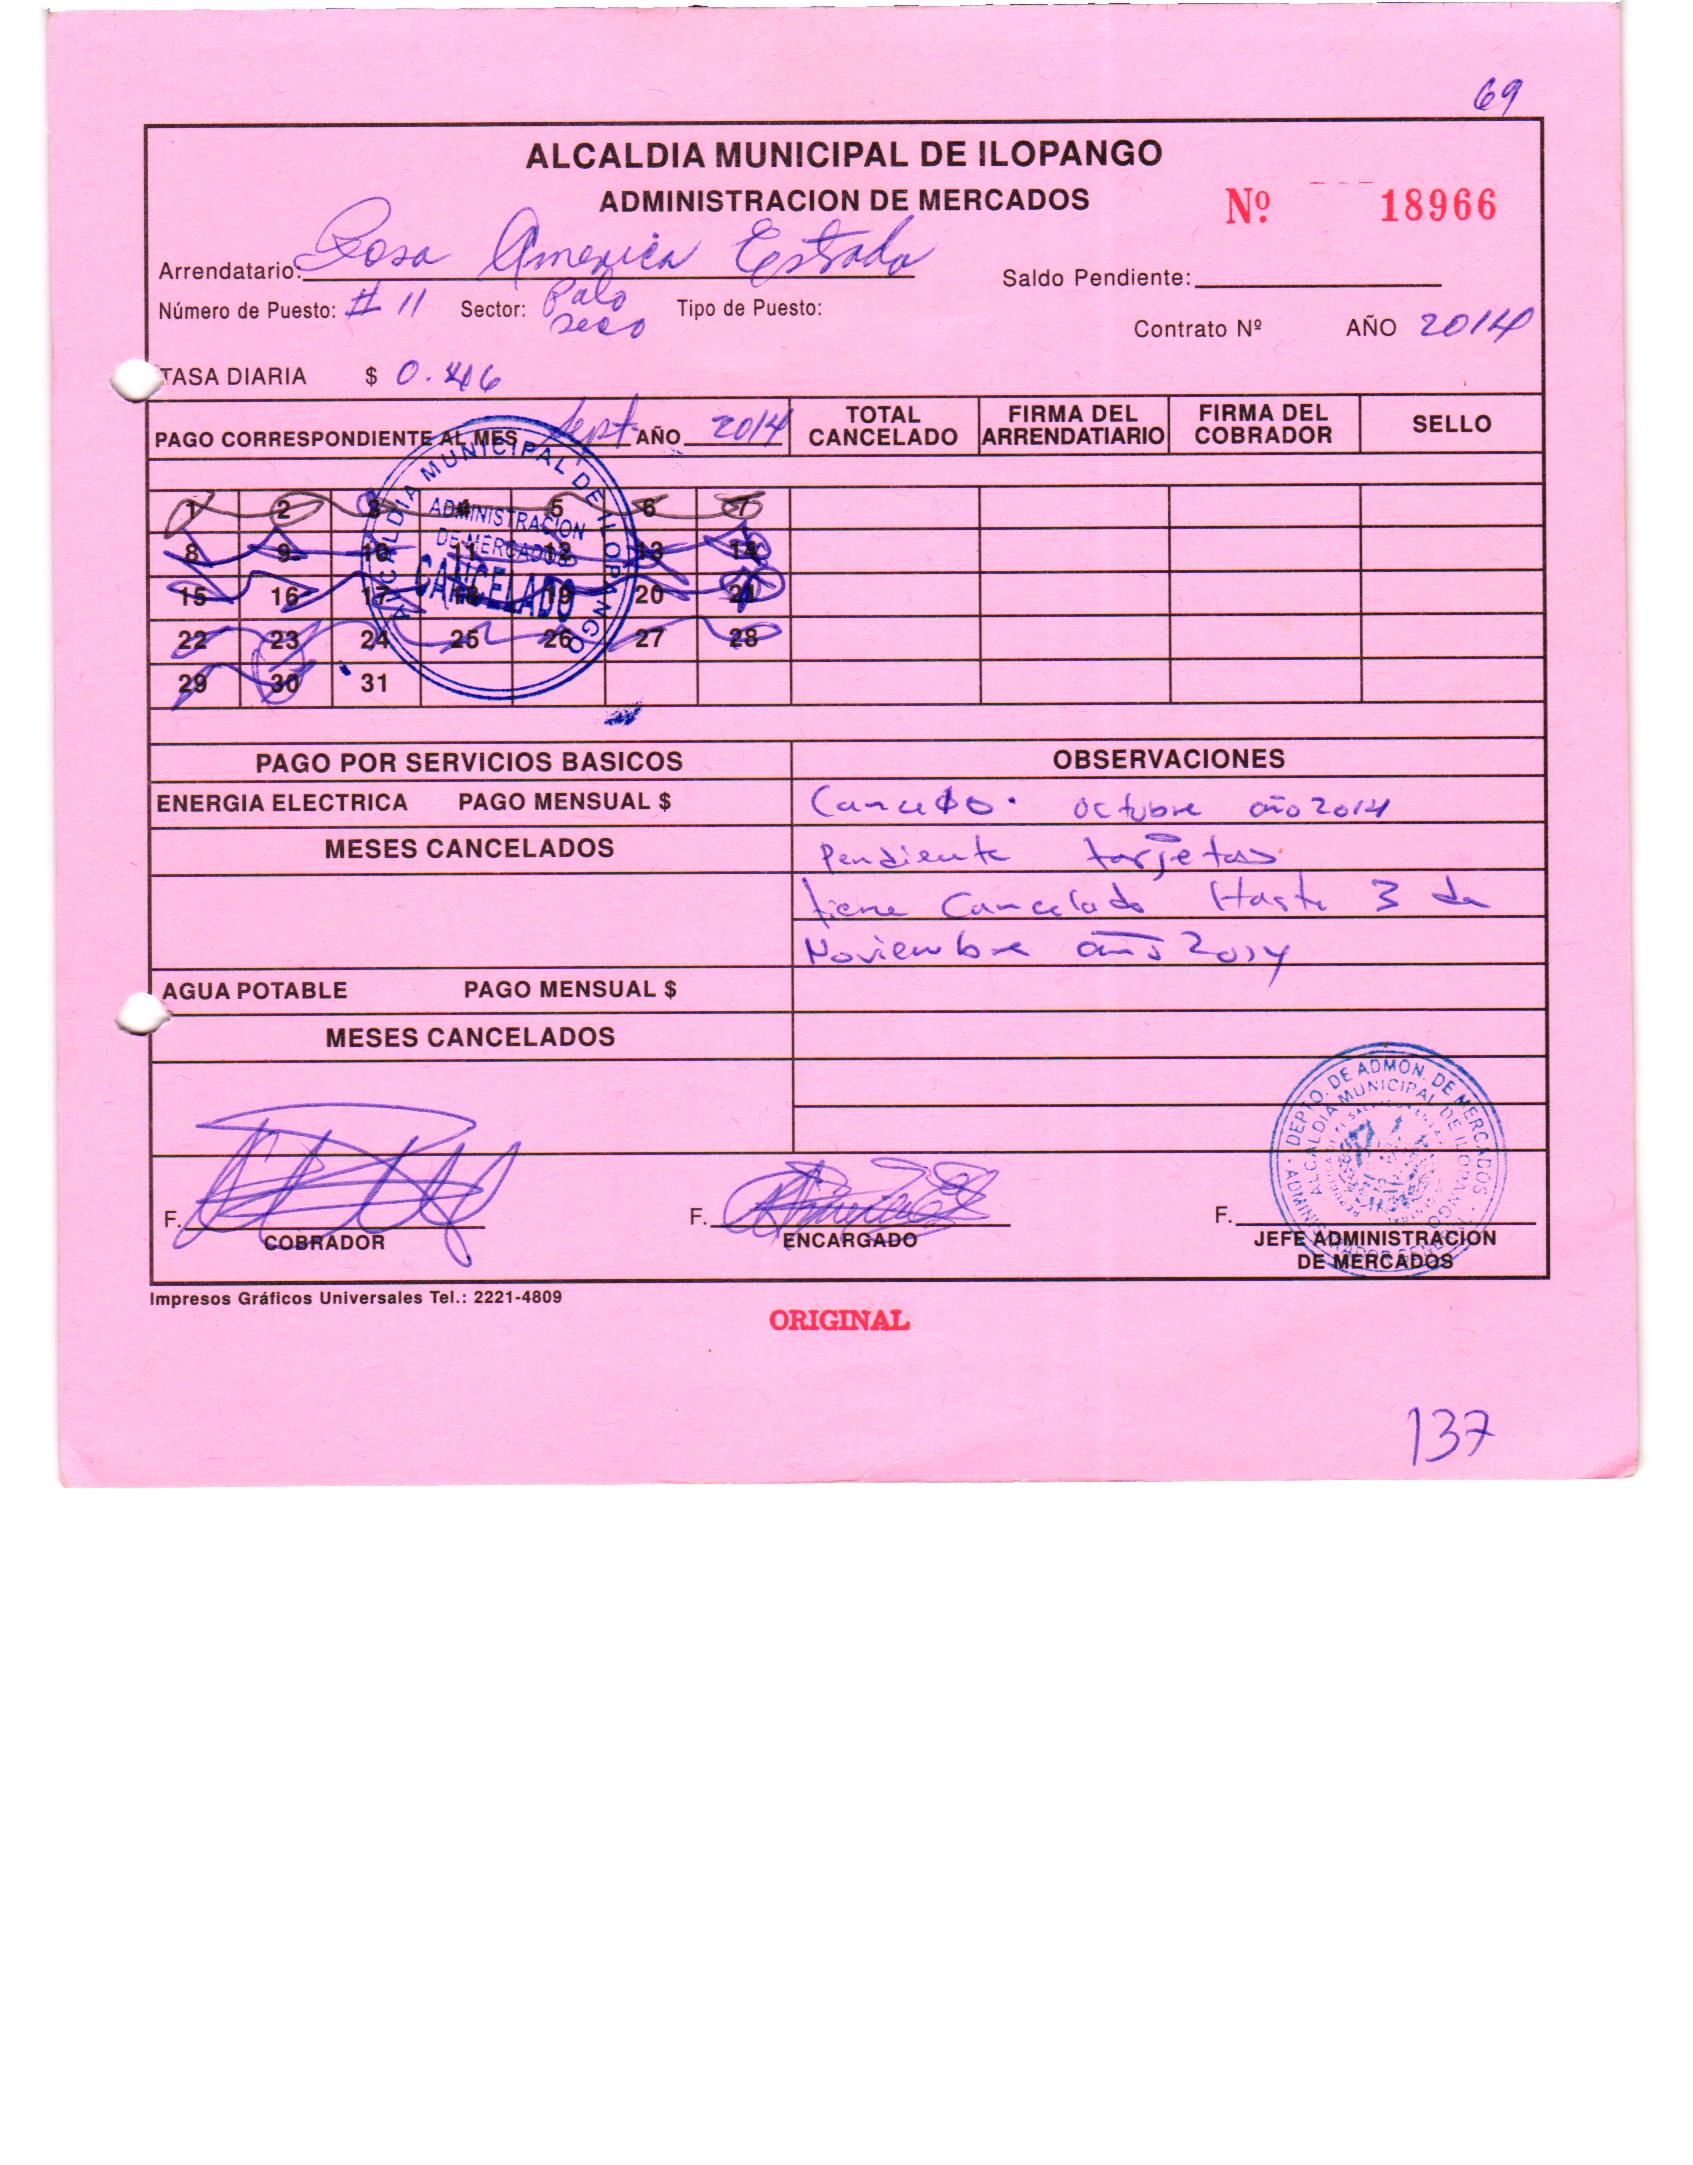 69
ALCALDIA MUNICIPAL DE ILOPANGO
ADMINISTRACION DE MERCADOS
Nº 18966
Arrendatario: Rosa America Estrada
Saldo Pendiente:
Número de Puesto: # 11 Sector: Palo seco Tipo de Puesto:
Contrato Nº AÑO 2014
TASA DIARIA $ 0.46
PAGO CORRESPONDIENTE AL MES Sept. AÑO 2014
TOTAL CANCELADO
FIRMA DEL ARRENDATIARIO
FIRMA DEL COBRADOR
SELLO
1 2 3 4 5 6 7
8 9 10 11 12 13 14
15 16 17 18 19 20 21
22 23 24 25 26 27 28
29 30 31
ALCALDIA MUNICIPAL DE ILOPANGO
ADMINISTRACION
DE MERCADOS
CANCELADO
PAGO POR SERVICIOS BASICOS
OBSERVACIONES
ENERGIA ELECTRICA PAGO MENSUAL $
octubre año 2014
MESES CANCELADOS
Pendiente tarjetas
tiene Cancelado Hasta 3 de
Noviembre año 2014
AGUA POTABLE PAGO MENSUAL $
MESES CANCELADOS
DEPTO. DE ADMON. DE MERCADOS
ALCALDIA MUNICIPAL DE ILOPANGO
F.
COBRADOR
F.
ENCARGADO
F.
JEFE ADMINISTRACION
DE MERCADOS
Impresos Gráficos Universales Tel.: 2221-4809
ORIGINAL
137